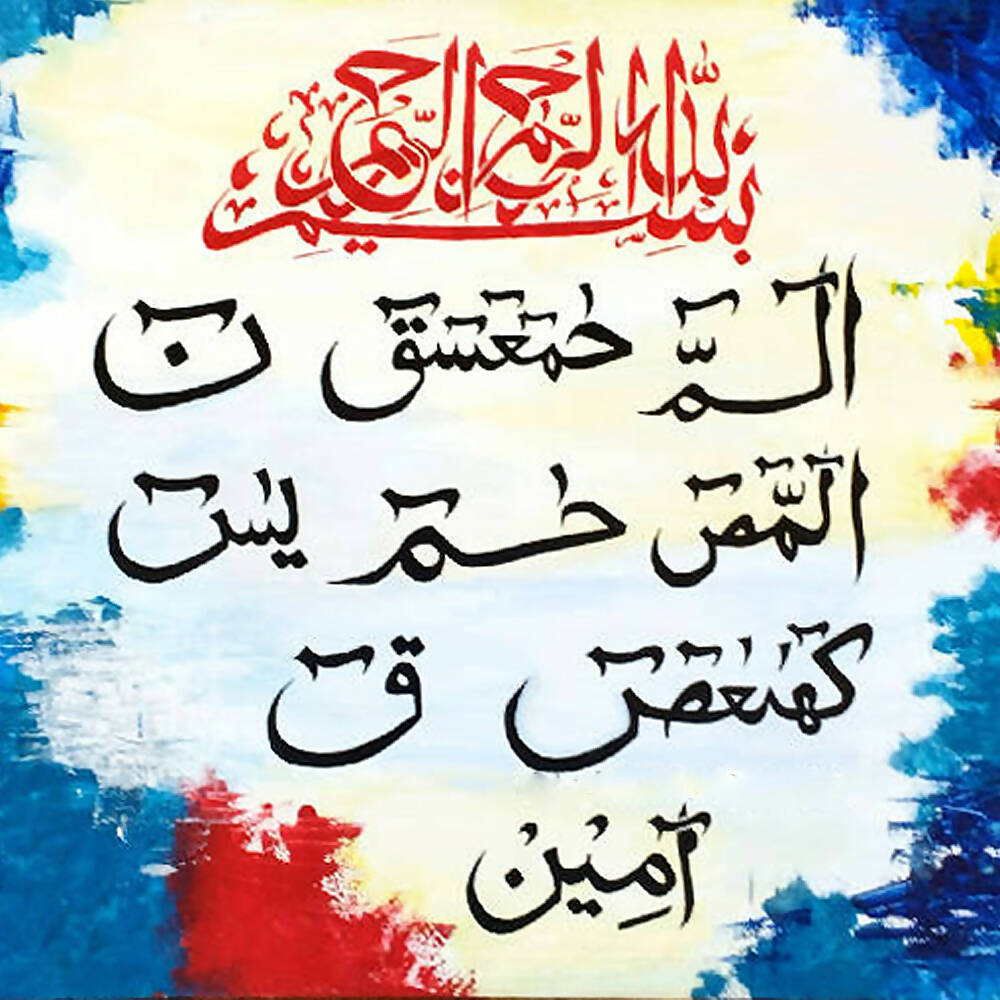 بِسْمِ اللّٰهِ الرَّحْمٰنِ الرَّحِيْمِ
الٓـمّٓ حٰمٓعٓسٓقٓ نٓ
الٓمّٓصٓ حٰـمٓ يٰسٓ
كٓهٰيٰعٓصٓ قٓ
آمِيْنْ